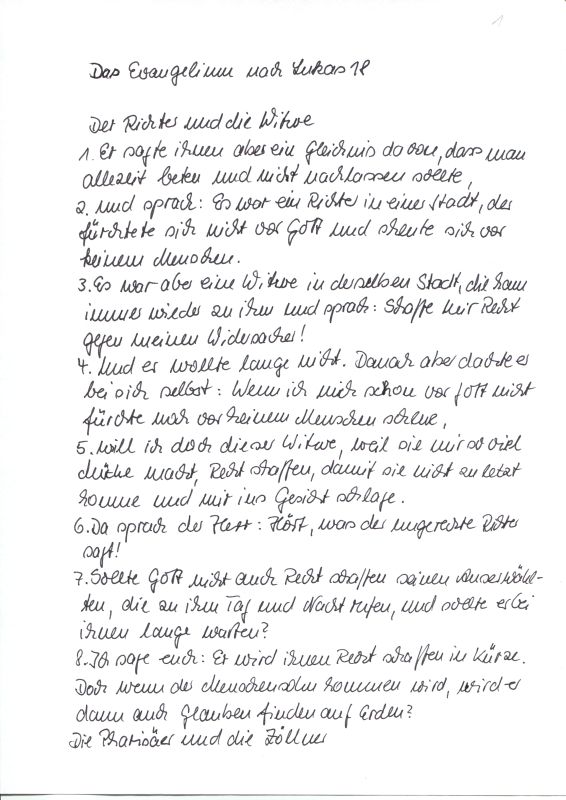 1
Das Evangelium nach Lukas 18
Der Richter und die Witwe
1. Er sagte ihnen aber ein Gleichnis davon, dass man
allezeit beten und nicht nachlassen sollte,
2. und sprach: Es war ein Richter in einer Stadt, der
fürchtete sich nicht vor Gott und scheute sich vor
keinem Menschen.
3. Es war aber eine Witwe in derselben Stadt, die kam
immer wieder zu ihm und sprach: Schaffe mir Recht
gegen meinen Widersacher!
4. Und er wollte lange nicht. Danach aber dachte er
bei sich selbst: Wenn ich mich schon vor Gott nicht
fürchte noch vor keinem Menschen scheue,
5. will ich doch dieser Witwe, weil sie mir so viel
Mühe macht, Recht schaffen, damit sie nicht zuletzt
komme und mir ins Gesicht schlage.
6. Da sprach der Herr: Hört, was der ungerechte Richter
sagt!
7. Sollte Gott nicht auch Recht schaffen seinen Auserwähl-
ten, die zu ihm Tag und Nacht rufen, und sollte er bei
ihnen lange warten?
8. Ich sage euch: Er wird ihnen Recht schaffen in Kürze.
Doch wenn der Menschensohn kommen wird, wird er
dann auch Glauben finden auf Erden?
Die Pharisäer und die Zöllner